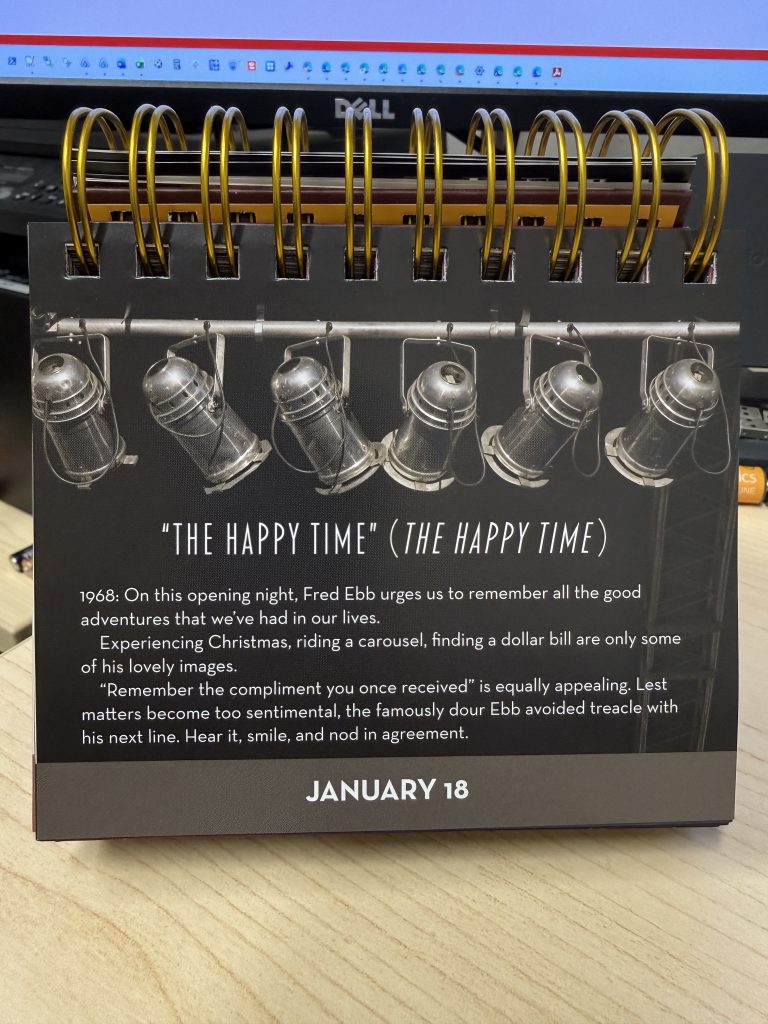 DELL
"THE HAPPY TIME" (THE HAPPY TIME)
1968: On this opening night, Fred Ebb urges us to remember all the good
adventures that we've had in our lives.
Experiencing Christmas, riding a carousel, finding a dollar bill are only some
of his lovely images.
"Remember the compliment you once received" is equally appealing. Lest
matters become too sentimental, the famously dour Ebb avoided treacle with
his next line. Hear it, smile, and nod in agreement.
JANUARY 18